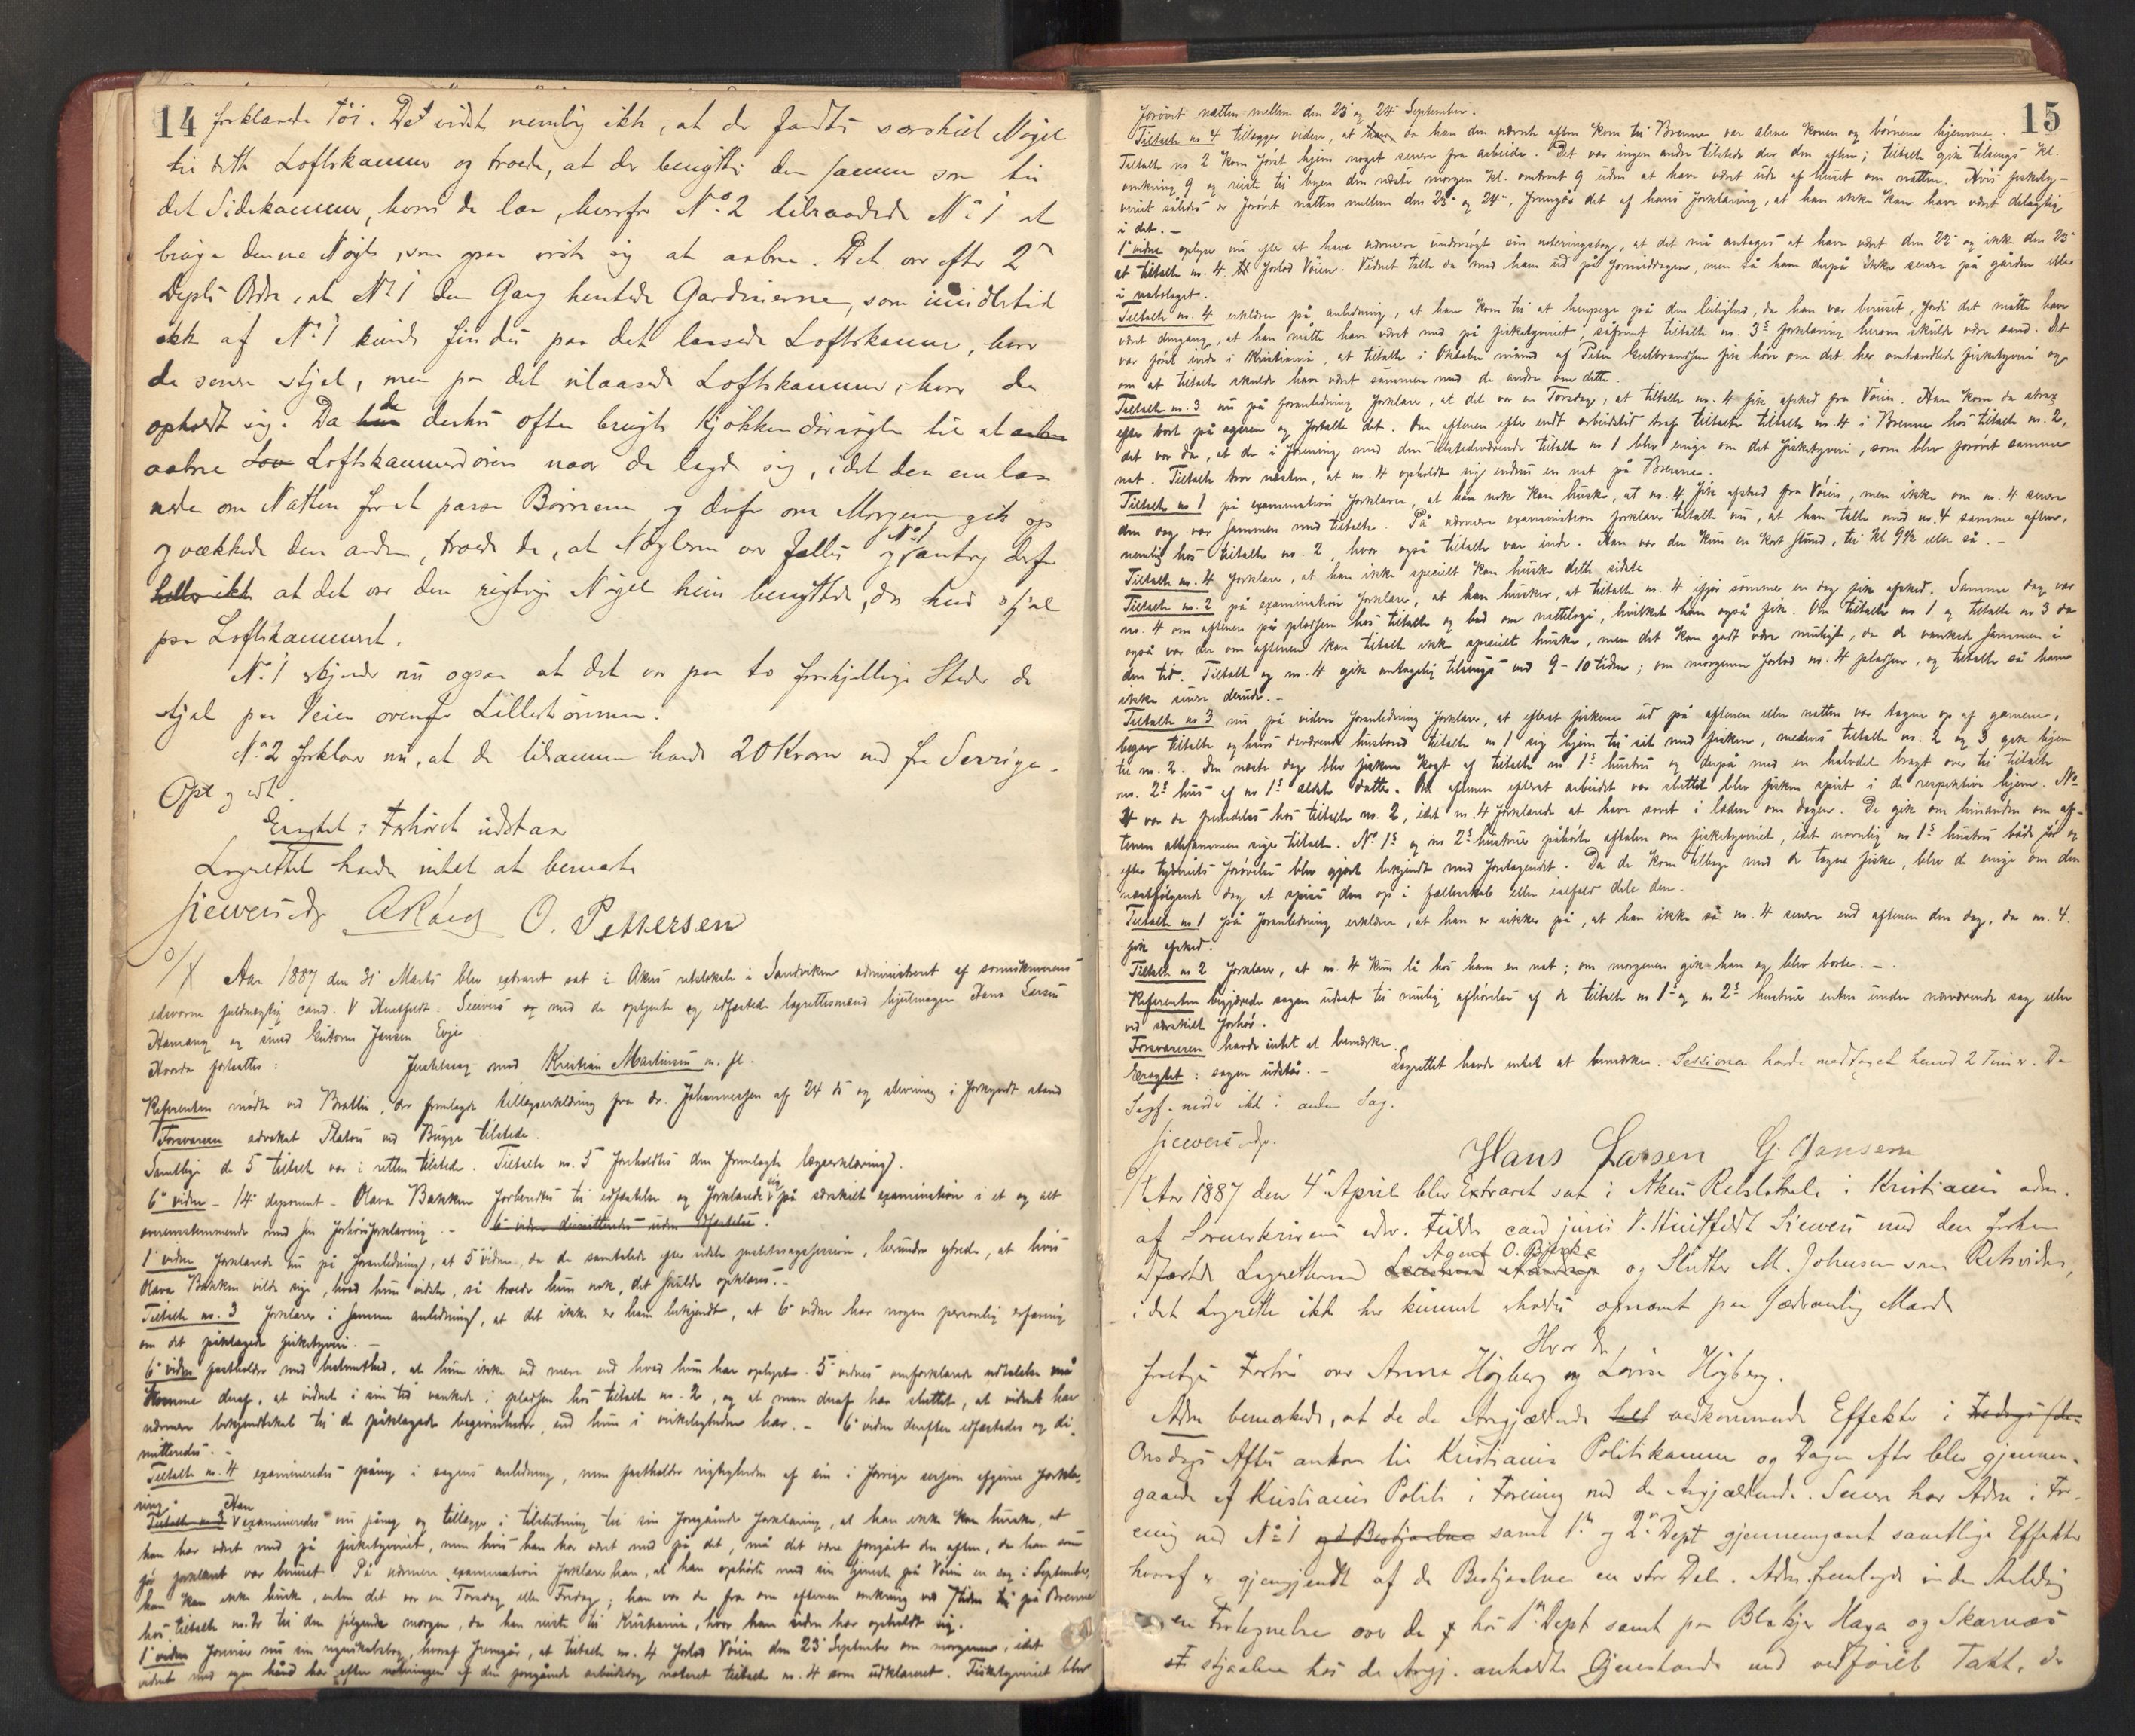 14
forklarede Töi. De vidste nemlig ikke, at der fandtes særskilt Nögel
til dette Loftskammer og troede, at der benyttes den samme som til
det Sidekammer, hvori de laa, hvorfor No. 2 tilraadede No. 1 at
bruge denne Nögle, som ogsaa viste sig at aabne. Det var efter 2den
Depts Ordre, at No 1 den Gang hentede Gardinerne, som imidlertid
ikke af No 1 kunde findes paa det laasede Loftskammer, hvor
de senere stjal, men paa det ulaasede Loftskammer, hvor de
opholdt sig. Da de derhos ofte brugte Kjökkendörnöglen til at
aabne Loftskammerdören naar de lagde sig, idet den ene laa
nede om Natten for at passe Börnene og derfor om Morgenen gik op
og vækkede den anden, troede de, at Nöglerne var fælles og No 1 antog derfor
at det var den rigtige Nögel hun benyttede, da hun stjal
paa Loftskammeret.
No 1 skjønner nu ogsaa at det var paa to forskjellige Steder de
stjal paa Veien ovenfor Lillestrømmen.
No 2 forklarer nu, at de tilsammen havde 20 Kroner med fra Sverige.
Opl og vedt.
Eragtet: Forhöret udstaar
Lagrettet havde intet at bemærke
Siewers edsv. O. Pettersen
Aar 1887 den 31 Marts blev extraret sat i Akers retslokale i Sandviken administreret af sorenskriverens
edsvorne fuldmægtig cand. V Huitfeldt Siewers og med de optjente og edfæstede lagrettesmænd hjulmager Hans Larsen
Hamang og smed Guttorm Jansen Evje
Hvorda fortsattes: Justitssag mod Kristian Martinsen m. fl.
Referenten mødte ved Brattlie, der fremlagde tillægserklæring fra dr. Johannessen af 24 ds og skrivning i forkyndt stand
Forsvareren advokat Platou ved Bugge tilstede.
Samtlige de 5 tiltalte var i retten tilstede. Tiltalte no. 5 foreholdtes den fremlagte lægeerklæring.
6te vidne - 14de deponent - Olava Bakken forberedtes til edfæstelse og forklarede sig på særskilt examination i et og alt
overensstemmende med sin forhörsforklaring. - 6te vidne dimitteredes uden edfæstelse.
1ste vidne forklarede nu på foranledning, at 5te vidne, da de samtalede efter sidste justitssagssession, herunder ytrede, at hvis
Olava Bakken vilde sige, hvad hun vidste, så troede hun nok, det skulde opklares. -
Tiltalte no. 3 forklarer i samme anledning, at det ikke er ham bekjendt, at 6te vidne har nogen personlig erfaring
om det påklagede fisketyveri. -
6te vidne fastholder med bestemthed, at hun ikke ved mere end hvad hun har oplyst. 5te vidnes omforklarede udtalelse må
komme deraf, at vidnet i sin tid vankede i pladsen hos tiltalte no. 2, og at man deraf har sluttet, at vidnet har
nærmere bekjendtskab til de påklagede begivenheder, end hun i virkeligheden har. - 6te vidne derefter edfæstedes og di-
mitteredes. -
Tiltalte no. 4 examineredes påny i sagens anledning, men fastholder rigtigheden af sin i forrige session afgivne forkla-
ring.
Han examineredes nu påny og tillægger i tilslutning til sin foregående forklaring, at han ikke kan huske, at
han har været med på fisketyveriet, men hvis han har været med på det, må det være foregået den aften, da han som
för forklaret var beruset. På nærmere examination forklarer han, at han ophörte med sin tjeneste på Vöien en dag i September,
han kan ikke huske, enten det var en Torsdag eller Fredag; han var da fra om aftenen omkring ved 7 tiden på Brenna
hos tiltalte no. 2 til den fölgende morgen, da han reiste til Kristiania, hvor han siden har opholdt sig.
1ste vidne foreviser nu sin regnskabsbog, hvoraf fremgår, at tiltalte no. 4 forlod Vöien den 23de September om morgenen, idet
vidnet med egen hånd har efter noteringen af den foregående arbeidsdag noteret tiltalte no. 4 som udklareret. Fisketyveriet blev
15
forövet natten mellem den 23de og 24de September.
Tiltalte no 4 tillægger videre, at da han den nævnte aften kom til Brenna, var alene konen og börnene hjemme.
Tiltalte no. 2 kom först hjem noget senere fra arbeide. Det var ingen andre tilstede der den aften; tiltalte gik tilsengs kl.
omkring 9 og reiste til byen den næste morgen kl. omtrent 9 uden at have været ude af huset om natten. Hvis fiskety-
veriet således er forövet natten mellem den 23de og 24de, fremgår det af hans forklaring, at han ikke kan have været delagtig
i det. -
1ste vidne oplyser nu efter at have nærmere undersögt sin noteringsbog, at det må antages at have været den 22de og ikke den 23de
at tiltalte no. 4 forlod Vöien. Vidnet talte da med ham ud på formiddagen, men så ham derpå ikke senere på gården eller
i nabolaget.
Tiltalte no. 4 erklærer på anledning, at han kom til at henpege på den leilighed, da han var beruset, fordi det måtte have
været dengang, at han måtte have været med på fisketyveriet, såfremt tiltalte no. 3s forklaring herom skulde være sand. Det
var först inde i Kristiania, at tiltalte i Oktober måned af Peter Gulbrandsen fik höre om det her omhandlede fisketyveri og
om at tiltalte skulde have været sammen med de andre om dette.
Tiltalte no. 3 nu på foranledning forklarer, at det var en Torsdag, at tiltalte no. 4 fik afsked fra Vöien. Han kom da strax
efter bort på ageren og fortalte det. Om aftenen efter endt arbeidstid traf tiltalte tiltalte no. 4 i Brenna hos tiltalte no. 2,
det var da, at de i forening med den tilstedeværende tiltalte no. 1 blev enige om det fisketyveri, som blev forövet samme
nat. Tiltalte tror næsten, at no. 4 opholdt sig endnu en nat på Brenna.
Tiltalte no 1 på examination forklarer, at han nok kan huske, at no. 4 fik afsked fra Vöien, men ikke om no. 4 senere
den dag var sammen med tiltalte. På nærmere examination forklarer tiltalte nu, at han talte med no. 4 samme aften,
nemlig hos tiltalte no. 2, hvor også tiltalte var inde. Han var der kun en kort stund, til kl 9½ eller så. -
Tiltalte no. 4 forklarer, at han ikke specielt kan huske dette sidste
Tiltalte no. 2 på examination forklarer, at han husker, at tiltalte no. 4 ifjor sommer en dag fik afsked. Samme dag var
no. 4 om aftenen på pladsen hos tiltalte og bad om natteloge, hvilket han også fik. Om tiltalte no 1 og tiltalte no 3 da
også var der om aftenen kan tiltalte ikke specielt huske, men det kan godt være muligt, da de vankede sammen i
den tid. Tiltalte og no. 4 gik antagelig tilsengs ved 9-10 tiden; om morgenen forlod no. 4 pladsen, og tiltalte så ham
ikke senere derude. -
Tiltalte no 3 nu på videre foranledning forklarer, at efterat fiskene ud på aftenen eller natten var tagne op af garnene,
begav tiltalte og hans daværende husbond tiltalte no 1 sig hjem til sit med fisken, medens tiltalte no. 2 og 3 gik hjem
til no. 2. Den næste dag blev fisken kogt af tiltalte no 1s hustru og derpå med en halvdel bragt over til tiltalte
no. 2s hus af no 1s ældste datter. Om aftenen efterat arbeidet var sluttet blev fisken spist i de respektive hjem. No
4 var da fremdeles hos tiltalte no. 2, idet no. 4 forklarede at have sovet i laden om dagen. De gik om hinanden om af-
tenen allesammen siger tiltalte. No. 1s og no 2s hustruer påhörte aftalen om fisketyveriet, idet navnlig no 1s hustru både för og
efter tyveriets forövelse blev gjort bekjendt med foretagendet. Da de kom tilbage med de tagne fiske, blev de enige om den
næstfölgende dag at spise dem op i fællesskab eller ialfald dele dem.
Tiltalte no 1 på foranledning erklærer, at han er sikker på, at han ikke så no. 4 senere end aftenen den dag, da no. 4.
fik afsked.
Tiltalte no 2 forklarer, at no. 4 kun lå hos ham en nat; om morgenen gik han og blev borte. -
Referenten begjærede sagen udsat til mulig afhörelse af de tiltalte no 1s og no 2s hustruer enten under nærværende sag eller
ved særskilt forhör.
Forsvareren havde intet at bemærke.
Eragtet: sagen udstår. - Lagrettet havde intet at bemærke. Sessionen havde medtaget henved 2 Timer. De
Sagf. møder ikke i anden Sag.
Siewers edsv. Hans Larsen G. Jansen
Aar 1887 den 4de April blev Extraret sat i Akers Retslokale i Kristiania adm.
af Sorenskriverens edsv. Fuldm. cand juris V. Huitfeldt Siewers med den forhen
Agent O. Bjerke
edfæstede Lagrettemand og Slutter M. Johnsen som Retsvidne,
idet Lagrette ikke har kunnet skaffes opnævnt paa sædvanlig Maade
Hvor da
foretages Forhör over Anna Höjberg og Lovise Höjberg.
Adm. bemærkede, at de de Angjældende vedkommende Effekter i
Onsdags Aftes ankom til Kristiania Politikammer og Dagen efter blev gjennem-
gaaede af Kristiania Politi i Forening med de Angjældende. Senere har Adm. i For-
ening med No 1 samt 1ste og 2den Dept gjennemgaaet samtlige Effekter
hvoraf er gjenkjendt af de Bestjaalne en stor Del. Adm. fremlagde i den Anledning
en Fortegnelse over de hos 1ste Dept samt paa Blakjer Haga og Skarnæs
stjaalne hos de Angj. anholdte Gjenstande med vedföiet Takst, de